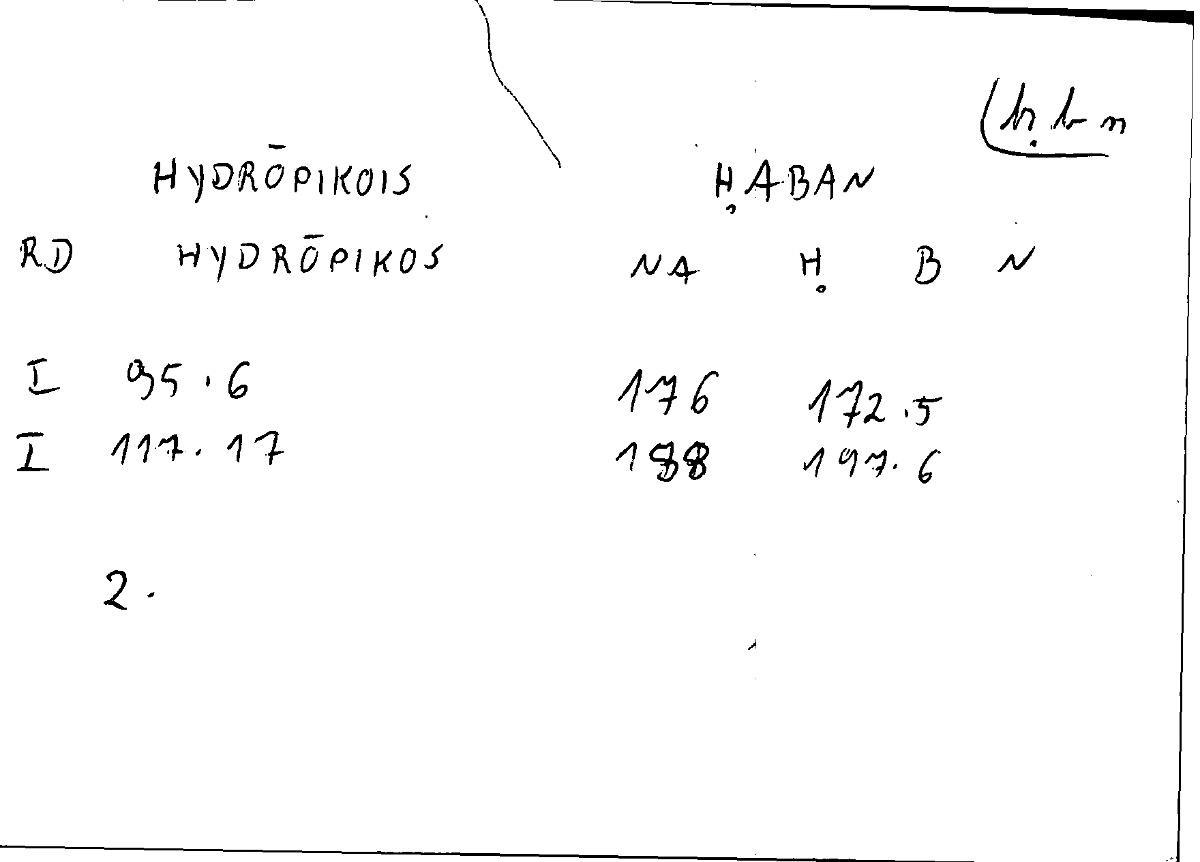 ḥ b n
HYDRŌPIKOIS ḤABAN
RD HYDRŌPIKOS NA Ḥ B N
I 95.6 176 172.5
I 117.17 188 197.6
2.